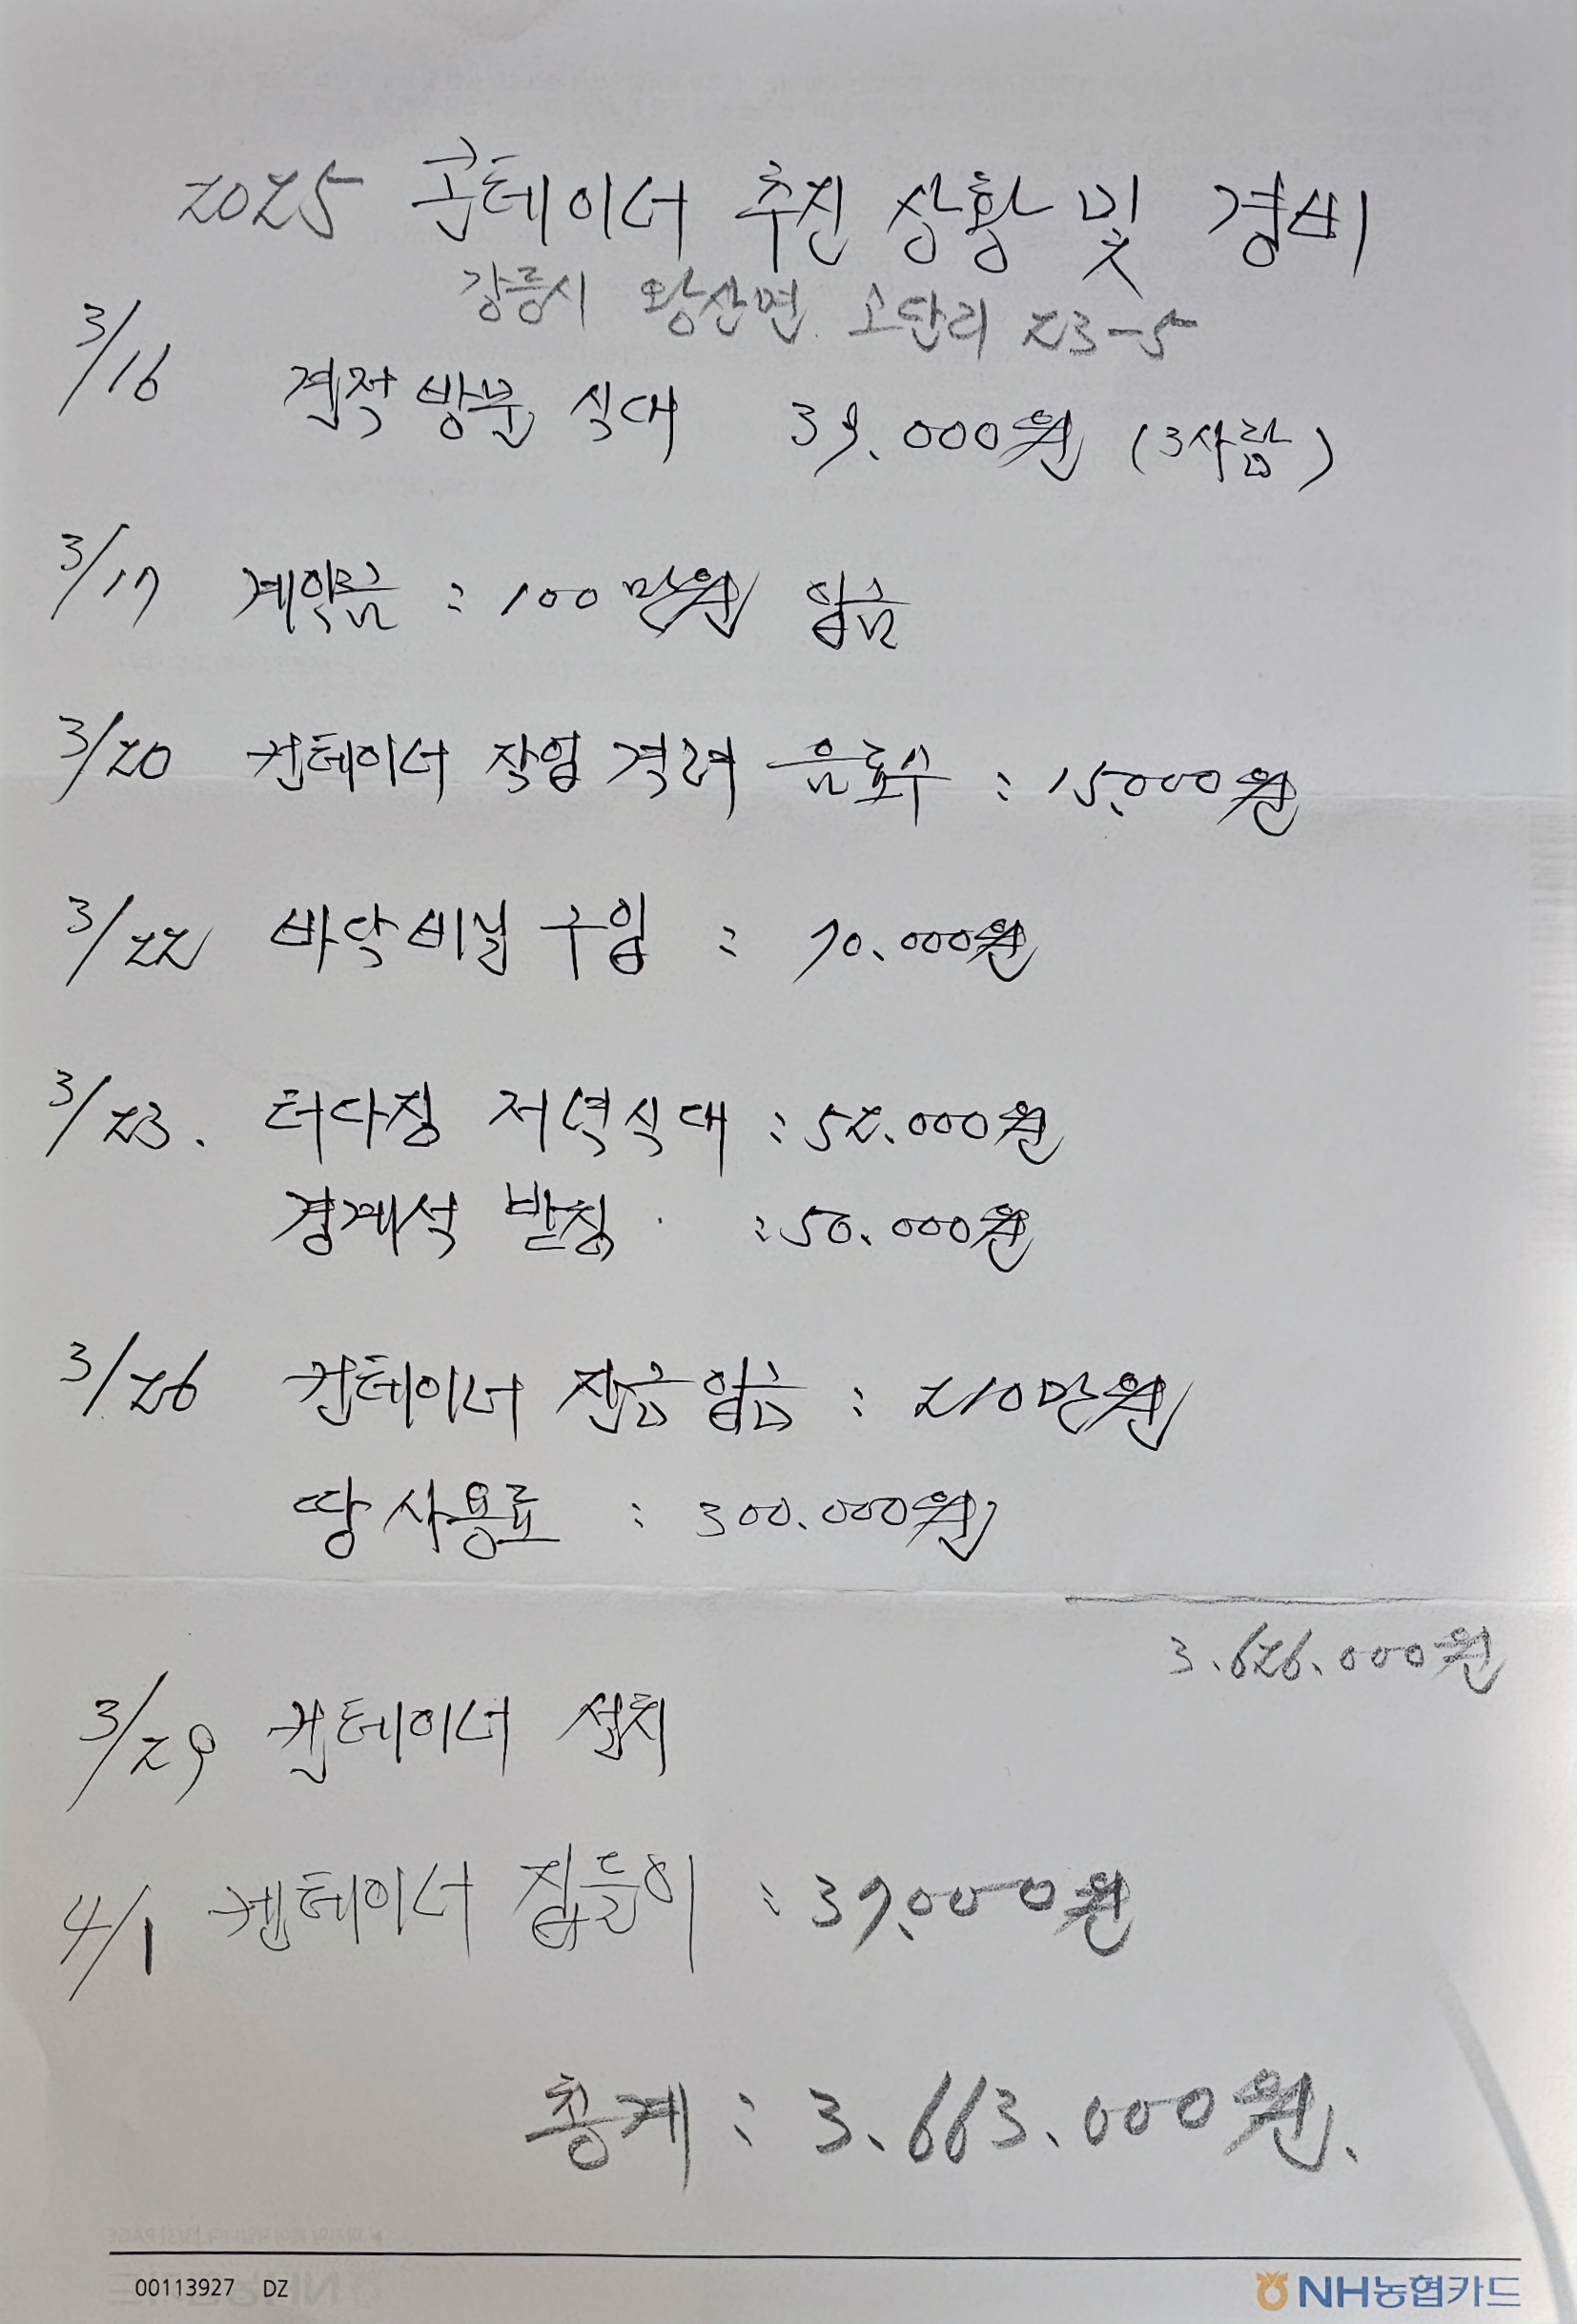 2025 콘테이너 추진 상황 및 경비
강릉시 왕산면 고단리 23-5
3/16 견적 방문 식대 39.000원 (3사람)
3/17 계약금 : 100만원 입금
3/20 컨테이너 작업 격려 음료수 : 15.000원
3/22 바닥비닐 구입 : 70.000원
3/23. 터다짐 저녁식대 : 52.000원
경계석 받침 : 50.000원
3/26 컨테이너 잔금입금 : 210만원
땅사용료 : 300.000원
3.626.000원
3/29 컨테이너 설치
4/1 컨테이너 집들이 : 37.000원
총계 : 3.663.000원.
00113927 DZ
NH농협카드